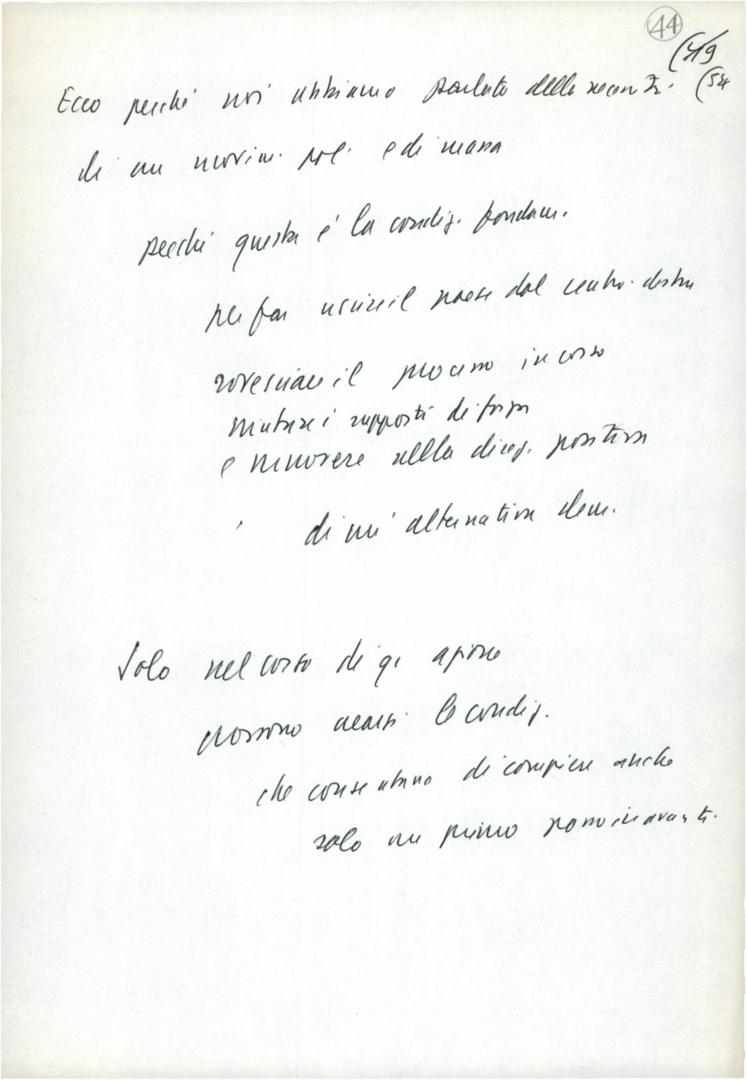 44
(49
(54
Ecco perché noi abbiamo parlato della necessità
di un movim. pol. e di massa
perché questa è la condiz. fondam.
per far uscire il paese dal centro-destra
rovesciare il processo in corso
mutare i rapporti di forza
e muovere nella direz. positiva
di un'alternativa dem.
Solo nel corso di qs azione
possono crearsi le condiz.
che consentano di compiere anche
solo un primo passo in avanti.